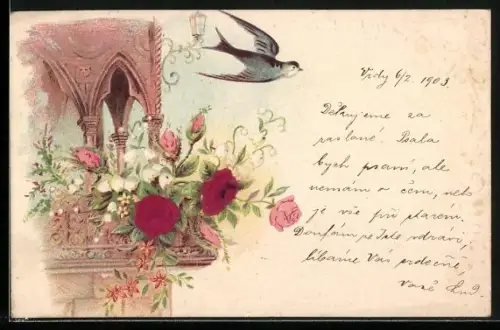 Vídy 6/2. 1903.
Děkujeme za
zaslané. Psala
bych psaní, ale
nemám o čem, neb
je vše při starém.
Doufám že Jste zdrávi,
líbáme Vás srdečně,
Vaše